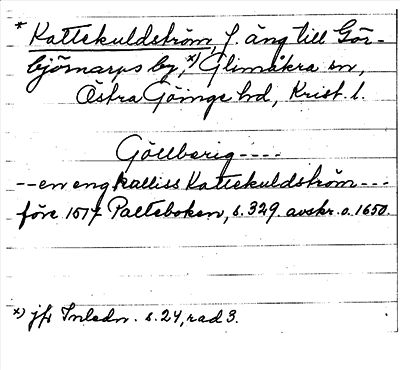 * Kattekuldström, f. äng till Gör-
björnarps by,*) Glimåkra sn,
Östra Göinge hd, Krist. l.
Göllberig ----
-- en eng kalliss Kattekuldström ---
före 1517 Palteboken, s. 329. avskr. o. 1650.
*) jfr Inledn. s. 24, rad 3.